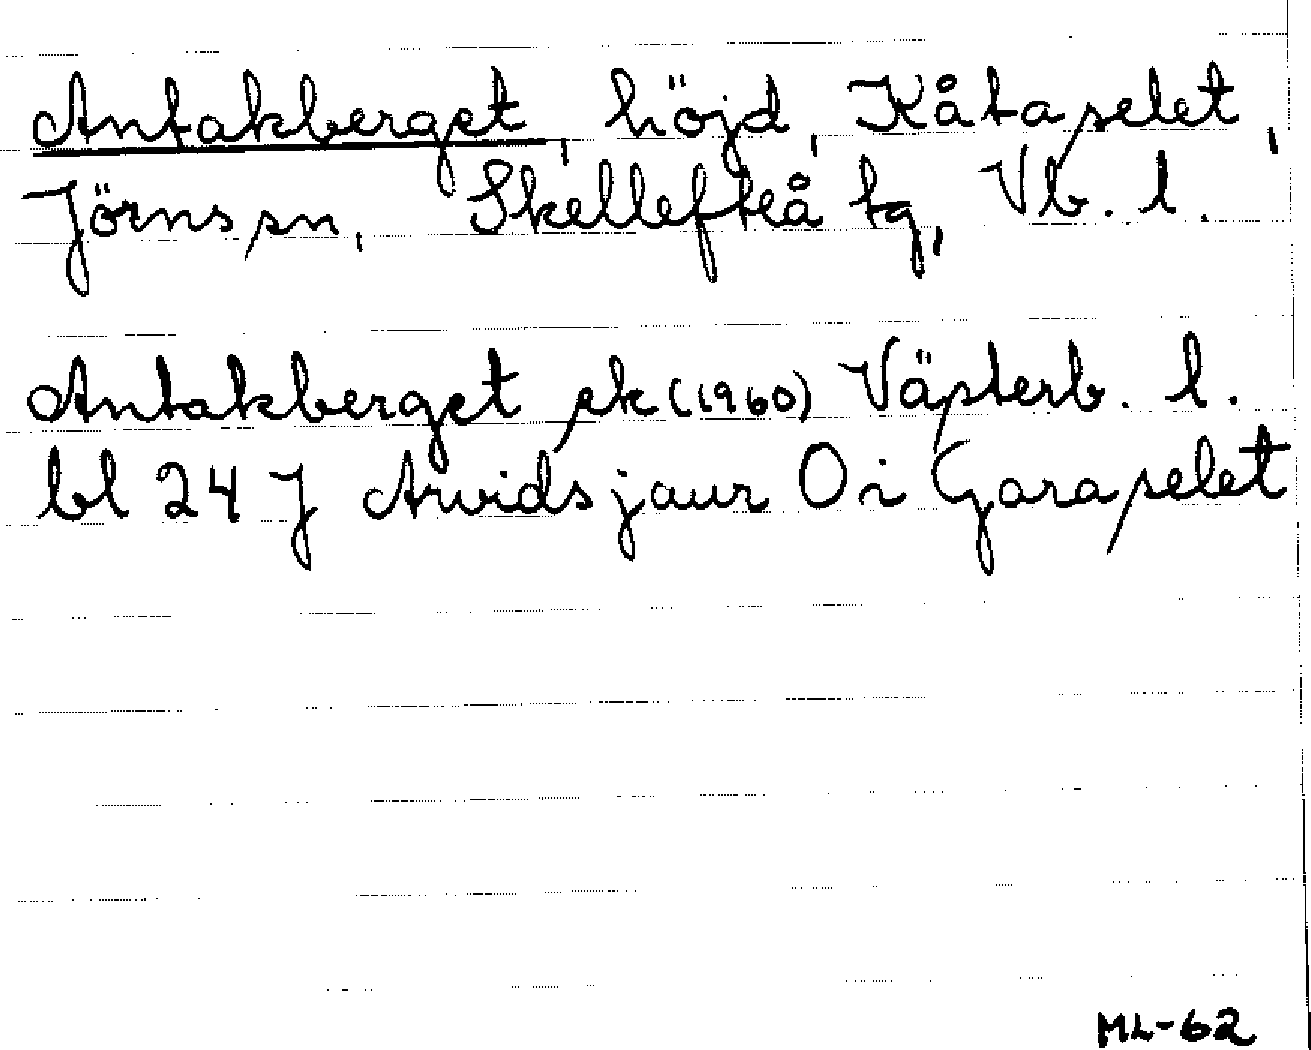 Antakberget, höjd, Kåtaselet,
Jörns sn, Skellefteå tg, Vb. l.
Antakberget ek (1960) Västerb. l.
bl 24 J Arvidsjaur O i Garaselet
ML-62